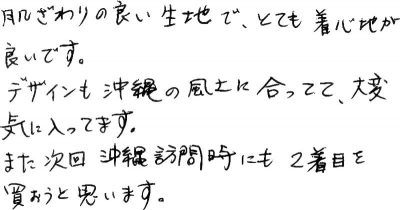 肌ざわりの良い生地で、とても着心地が
良いです。
デザインも沖縄の風土に合ってて、大変
気に入ってます。
また次回沖縄訪問時にも2着目を
買おうと思います。